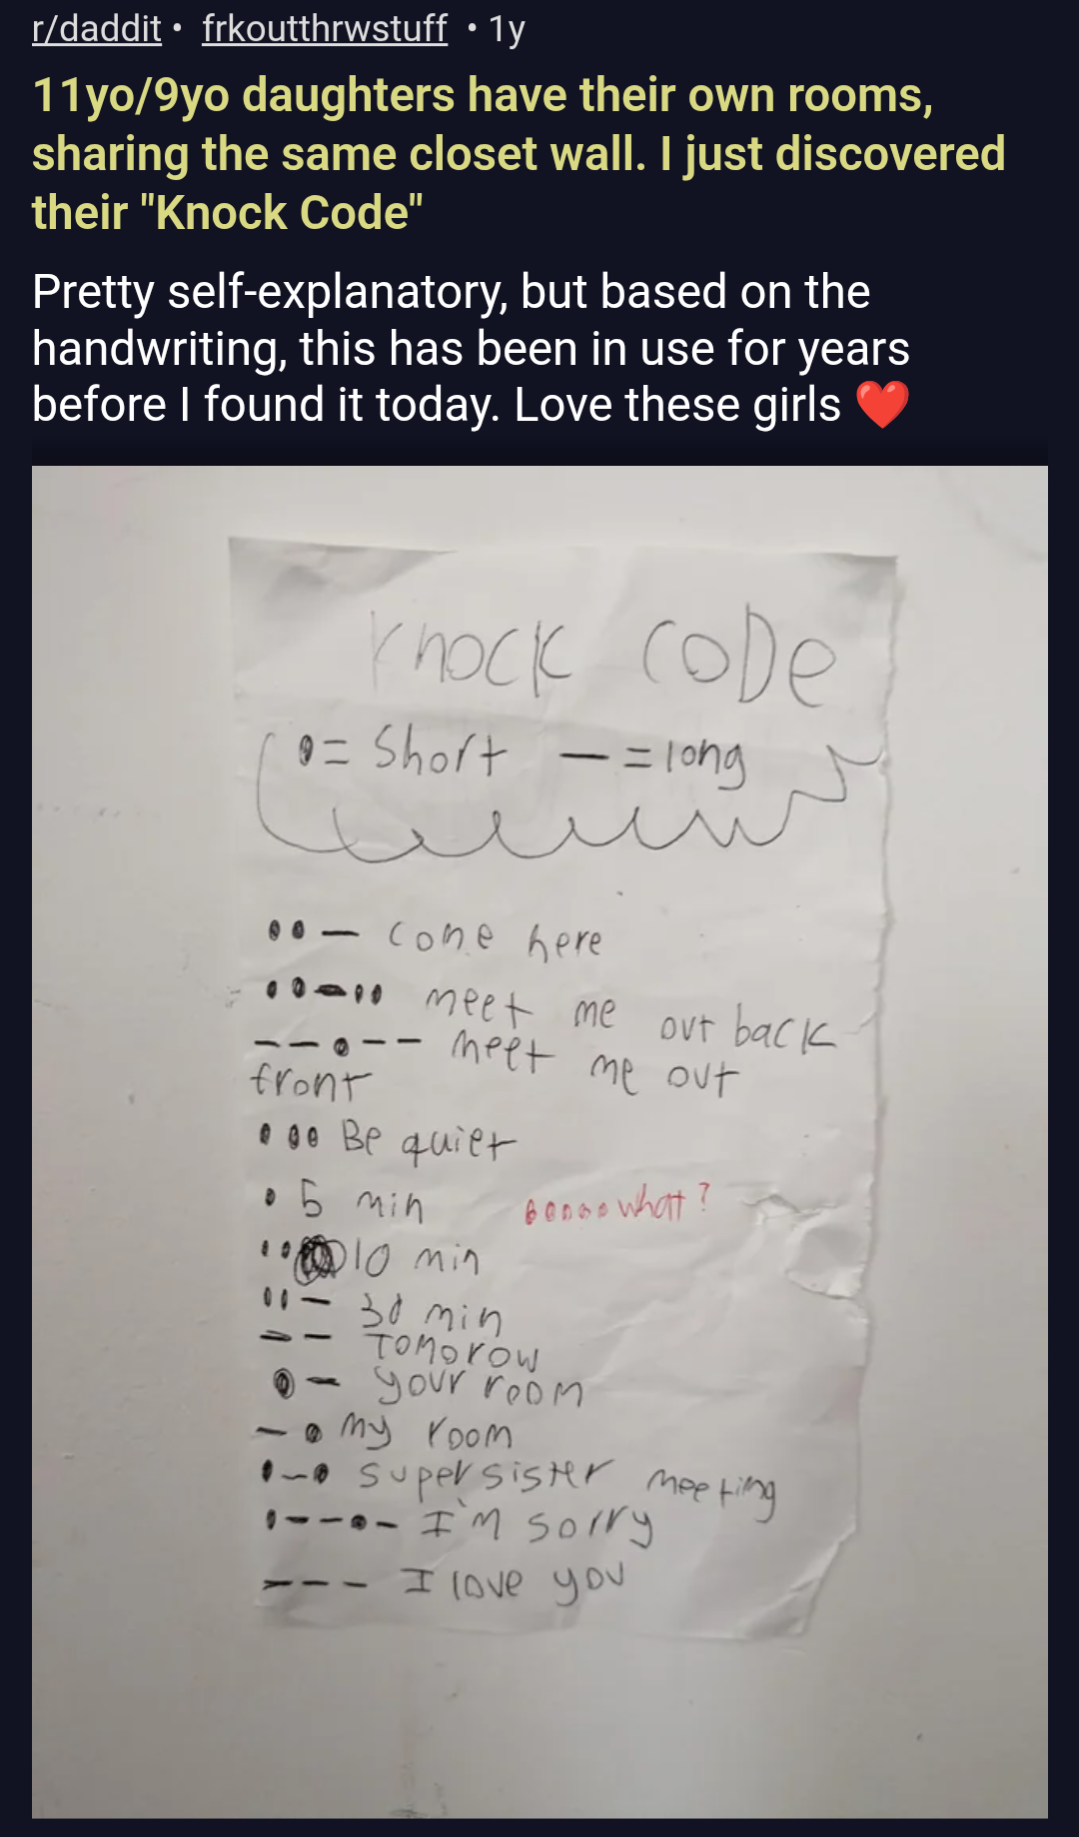 r/daddit • frkoutthrwstuff • 1y
11yo/9yo daughters have their own rooms,
sharing the same closet wall. I just discovered
their "Knock Code"
Pretty self-explanatory, but based on the
handwriting, this has been in use for years
before I found it today. Love these girls ❤️
Knock CoDe
•= Short — =long
•• — come here
••—•• meet me out back
——•—— meet me out
front
••• Be quiet
• 5 min ••••• what?
•• 10 min
••— 30 min
—— Tomorow
•— your room
—• My room
•—• super sister meeting
•——•— I'm sorry
——— I love you